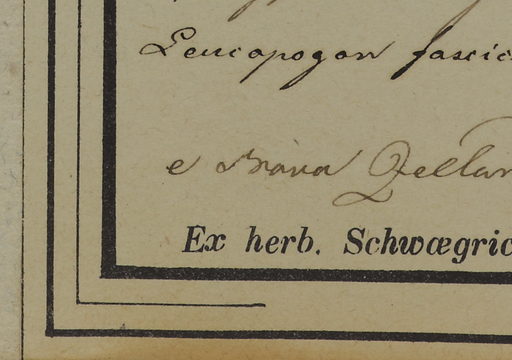 Leucopogon fascic
e Nova Zeelan
Ex herb. Schwægric